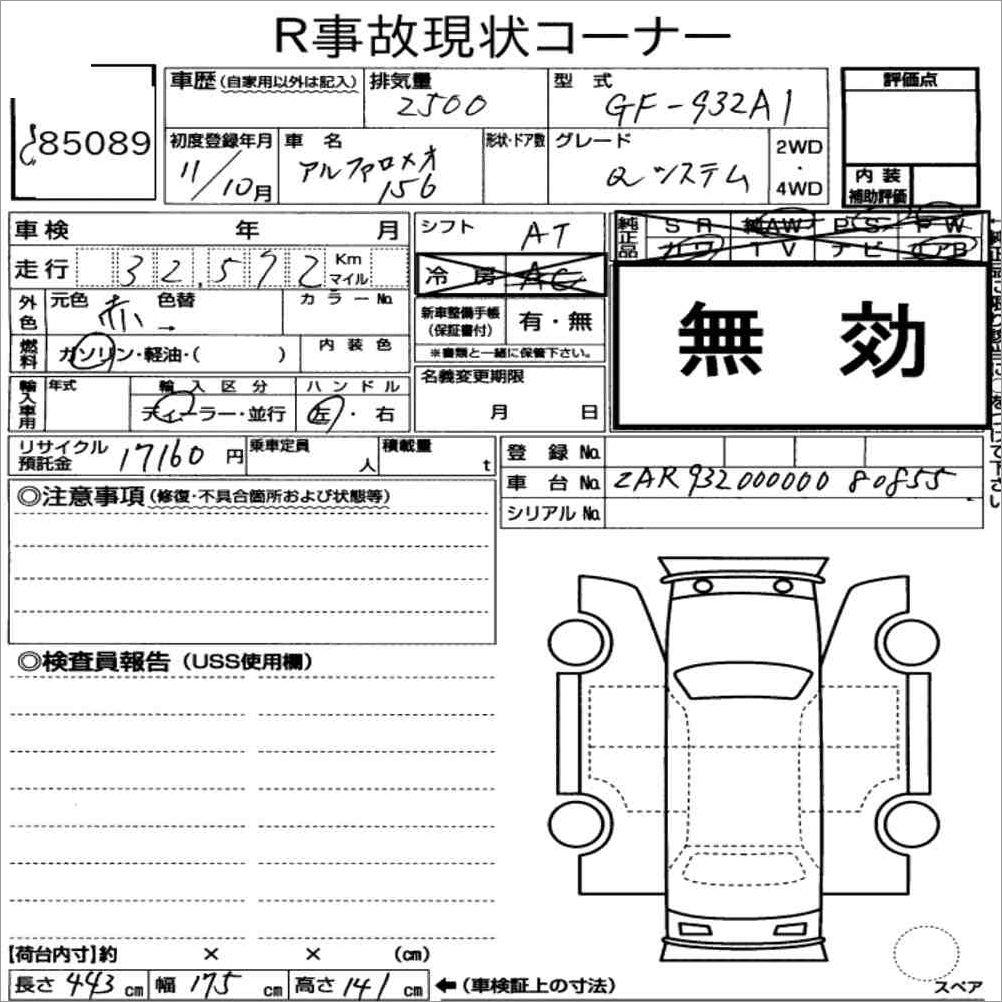 R事故現状コーナー
85089
車歴(自家用以外は記入)
排気量
2500
型式
GF-932A1
評価点
初度登録年月
11/10月
車名
アルファロメオ
156
形状・ドア数
グレード
Qシステム
2WD
・
4WD
内装
補助評価
車検 年 月
走行 32,572 Km
マイル
シフト AT
冷房 AC
純正品
SR 純AW PS PW
カワ TV ナビ エアB
外色
元色 赤 色替 →
カラーNo
燃料
ガソリン・軽油・( )
内装色
新車整備手帳
(保証書付)
有・無
※書類と一緒に保管下さい。
無効
輸入車用
年式
輸入区分
ディーラー・並行
ハンドル
左・右
名義変更期限
月 日
リサイクル
預託金 17160 円
乗車定員
人
積載量
t
登録No
車台No ZAR932000000 80855
シリアルNo
◎注意事項(修復・不具合箇所および状態等)
◎検査員報告(USS使用欄)
【荷台内寸】約 × × (cm)
長さ 443 cm 幅 175 cm 高さ 141 cm ←(車検証上の寸法)
スペア